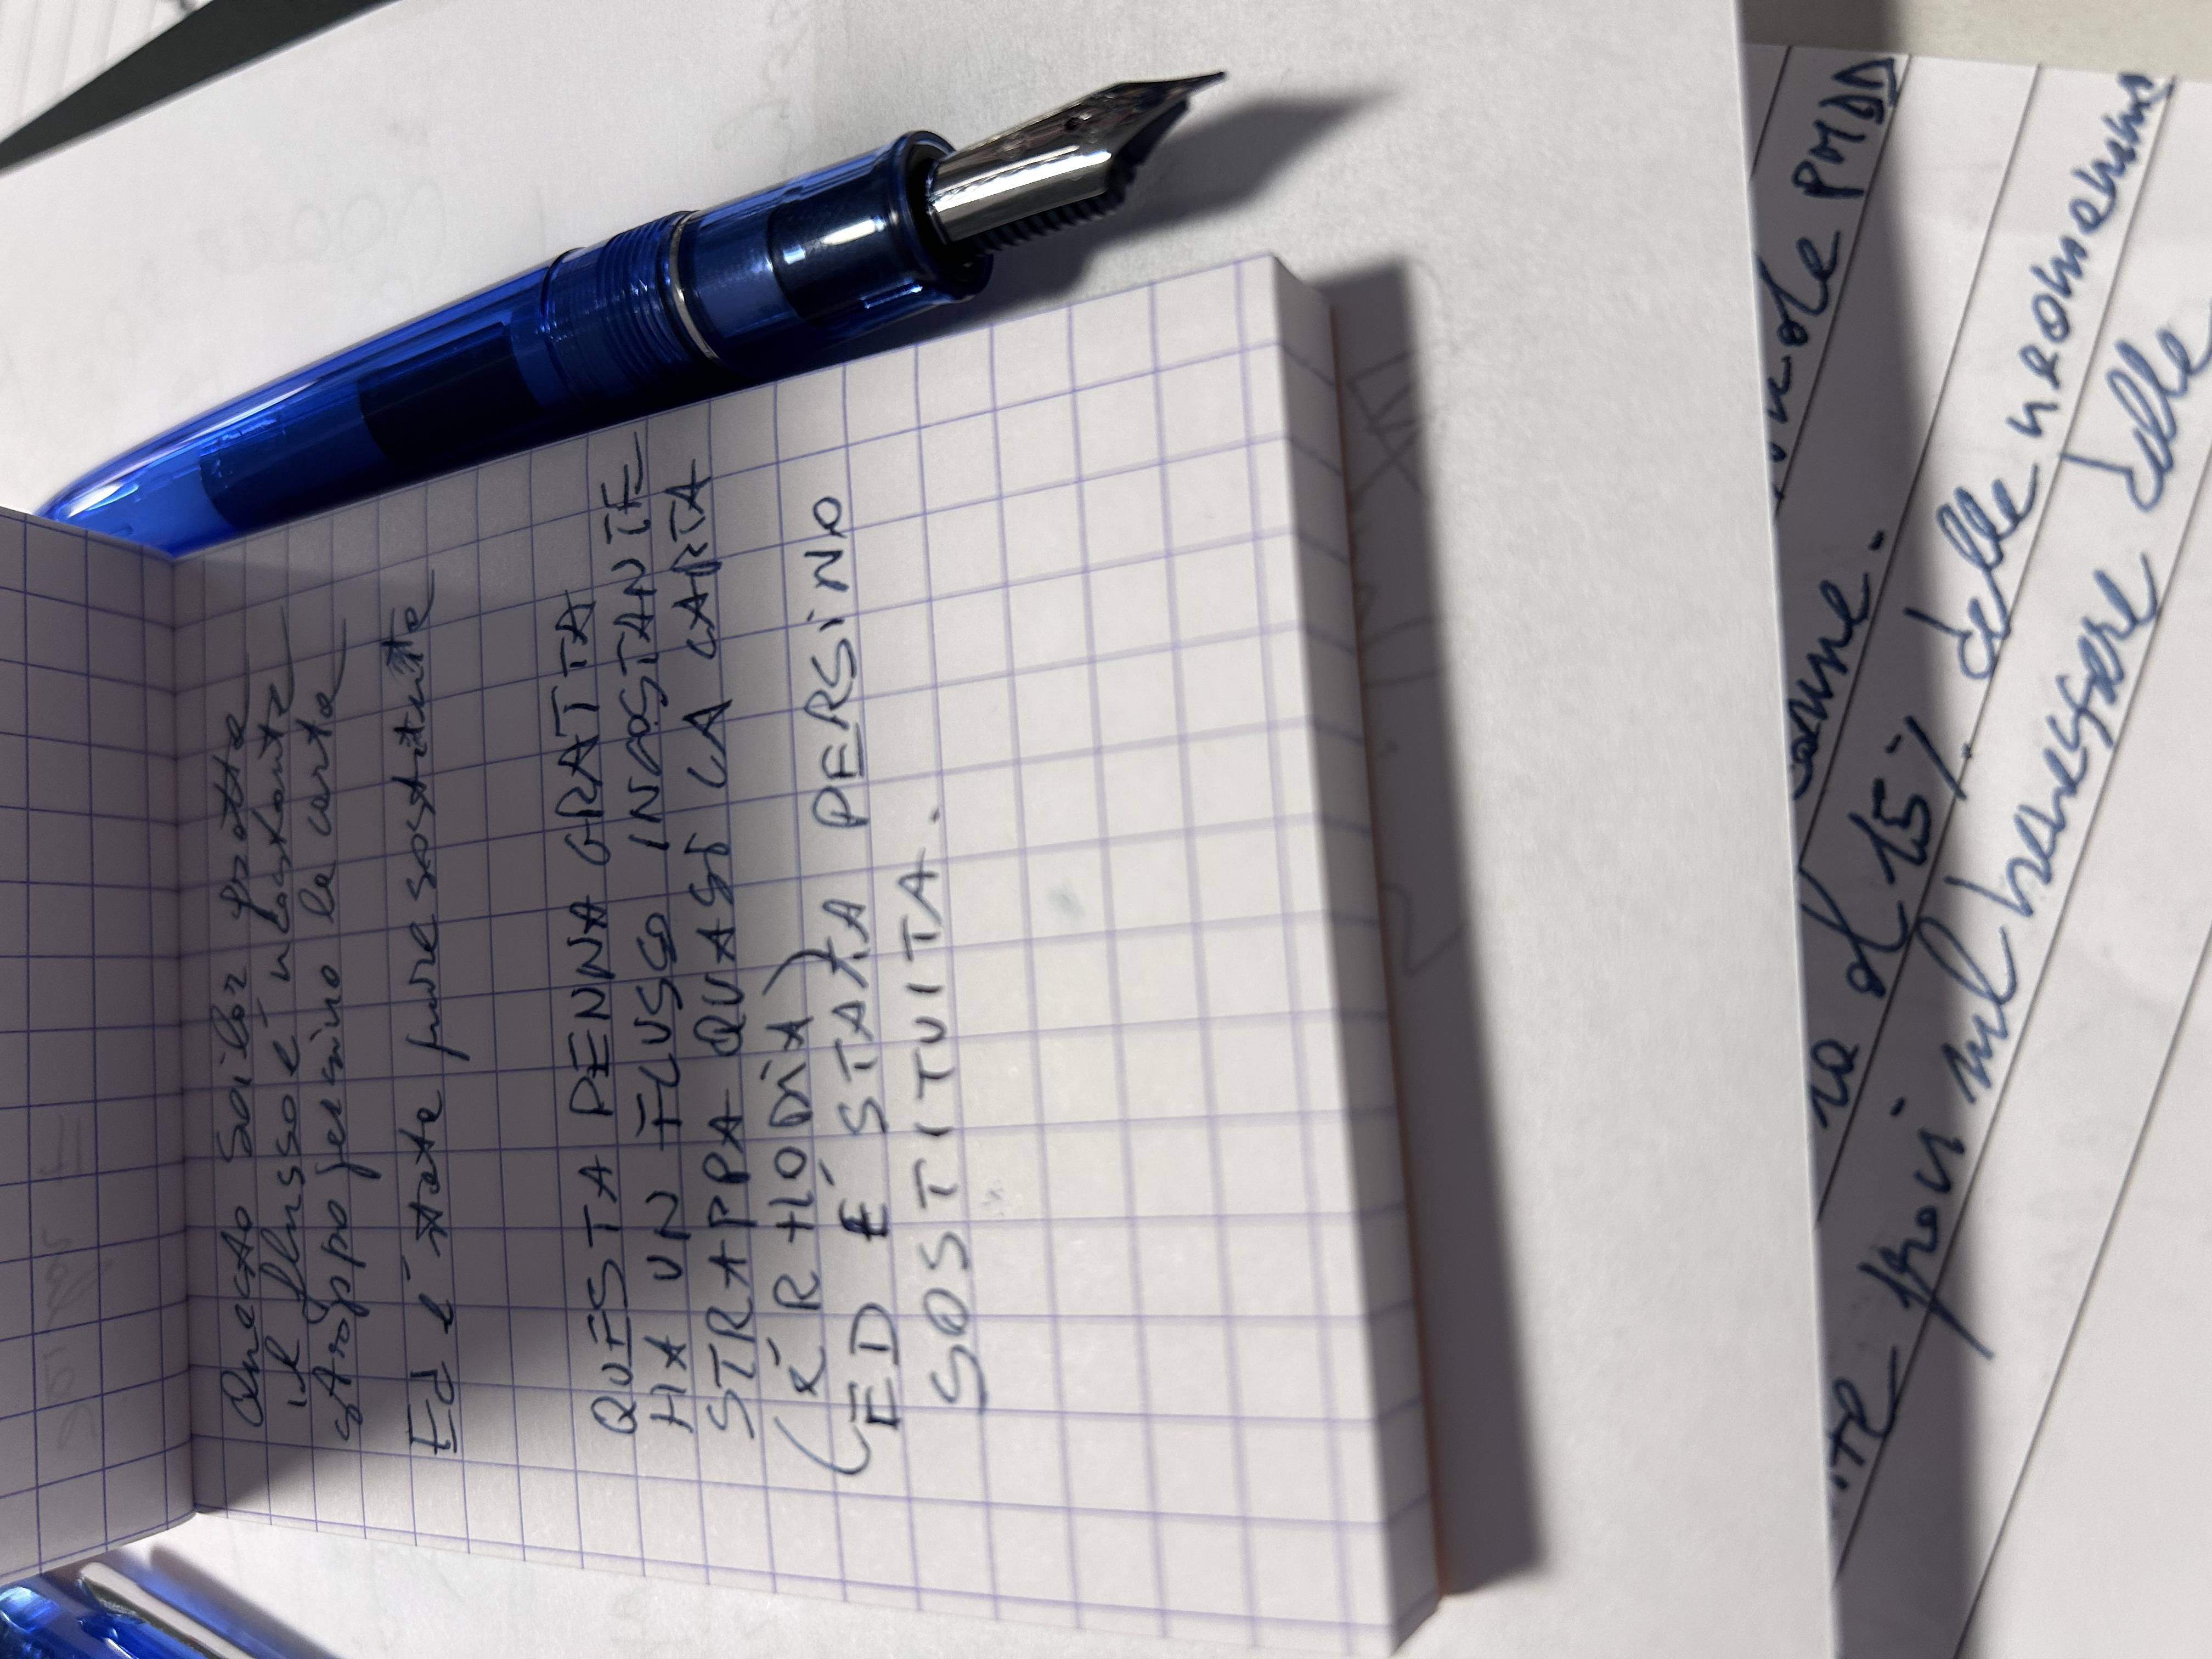 Questo Sailor gratta
il flusso é incostante
strappo persino la carta
Ed é stata pure sostituita
QUESTA PENNA GRATTA
HA UN FLUSSO INCOSTANTE
STRAPPA QUASI LA CARTA
(É RHODIA)
ED É STATA PERSINO
SOSTITUITA.
PMDD
al 15% delle neomamme
nel benessere delle